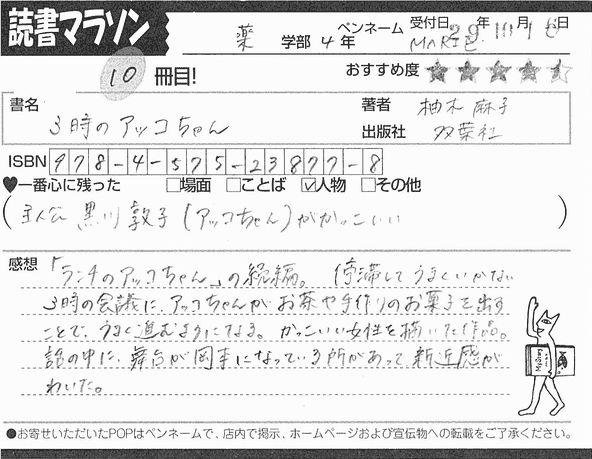 読書マラソン
薬 学部 4 年 ペンネーム MARIE 受付日 29年 10月 16日
10 冊目! おすすめ度 ★★★★☆
書名 3時のアッコちゃん
著者 柚木 麻子
出版社 双葉社
ISBN 978-4-575-23877-8
♥一番心に残った □場面 □ことば ☑人物 □その他
(主人公 黒川敦子(アッコちゃん)がかっこいい)
感想 「ランチのアッコちゃん」の続編。 停滞してうまくいかない
3時の会議に、アッコちゃんが お茶や手作りのお菓子を出す
ことで、うまく進むようになる。かっこいい女性を描いた作品。
話の中に、舞台が岡本になっている所があって、新近感が
わいた。
Mystery
●お寄せいただいたPOPはペンネームで、店内で掲示、ホームページおよび宣伝物への転載をご了承ください。